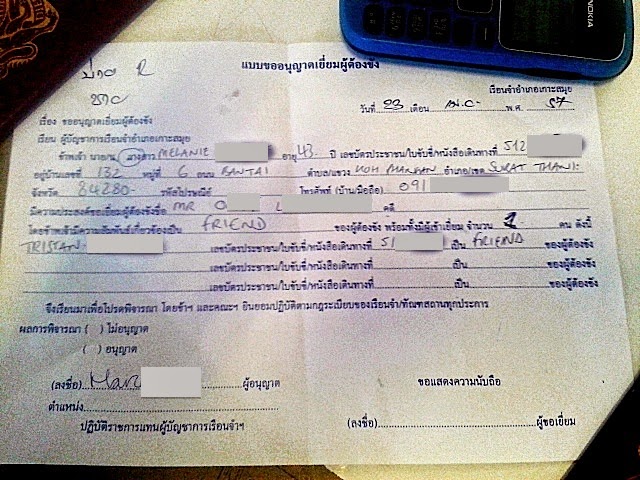 NOKIA
แบบขออนุญาตเยี่ยมผู้ต้องขัง
เรือนจำอำเภอเกาะสมุย
วันที่ 23 เดือน พ.ศ. 57
เรื่อง ขออนุญาตเยี่ยมผู้ต้องขัง
เรียน ผู้บัญชาการเรือนจำอำเภอเกาะสมุย
ข้าพเจ้า นาย/นาง/นางสาว MELANIE อายุ 43 ปี เลขบัตรประชาชน/ใบขับขี่/หนังสือเดินทางที่ 512
อยู่บ้านเลขที่ 132 หมู่ที่ 6 ถนน BANTAI ตำบล/แขวง KOH PHANGAN อำเภอ/เขต SURAT THANI
จังหวัด 84280 รหัสไปรษณีย์ โทรศัพท์ (บ้าน/มือถือ) 091
มีความประสงค์ขอเยี่ยมผู้ต้องขังชื่อ MR O L คดี
โดยข้าพเจ้ามีความสัมพันธ์เกี่ยวข้องเป็น FRIEND ของผู้ต้องขัง พร้อมทั้งมีผู้เข้าเยี่ยม จำนวน 1 คน ดังนี้
TRISTAN เลขบัตรประชาชน/ใบขับขี่/หนังสือเดินทางที่ 51 เป็น FRIEND ของผู้ต้องขัง
เลขบัตรประชาชน/ใบขับขี่/หนังสือเดินทางที่ เป็น ของผู้ต้องขัง
เลขบัตรประชาชน/ใบขับขี่/หนังสือเดินทางที่ เป็น ของผู้ต้องขัง
จึงเรียนมาเพื่อโปรดพิจารณา โดยข้าฯ และคณะฯ ยินยอมปฏิบัติตามกฎระเบียบของเรือนจำ/ทัณฑสถานทุกประการ
ผลการพิจารณา ( ) ไม่อนุญาต
( ) อนุญาต
ขอแสดงความนับถือ
(ลงชื่อ) ผู้อนุญาต
ตำแหน่ง
(ลงชื่อ) ผู้ขอเยี่ยม
ปฏิบัติราชการแทนผู้บัญชาการเรือนจำฯ